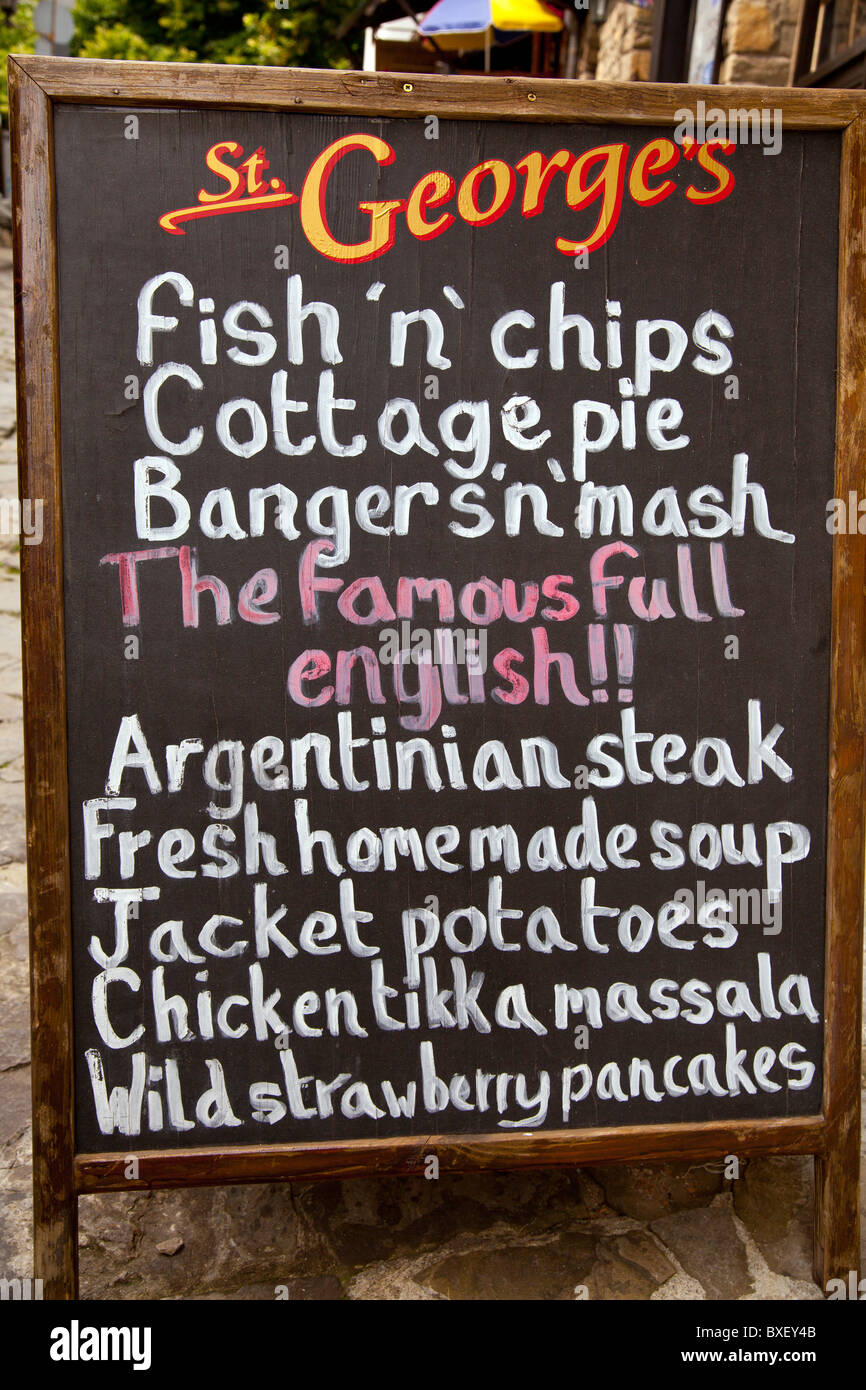 St. George's
fish 'n' chips
Cottage pie
Bangers 'n' mash
The famous full
english!!
Argentinian steak
Fresh homemade soup
Jacket potatoes
Chicken tikka massala
Wild strawberry pancakes
alamy
Image ID: BXEY4B
www.alamy.com